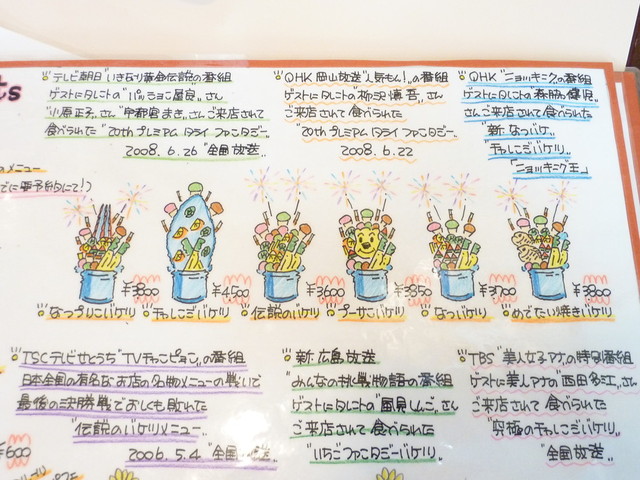 ts
テレビ朝日"いきなり黄金伝説"の番組
ゲストにタレントの"パッション屋良"さん
"小原正子"さん "宇都宮まき"さんご来店されて
食べられた "20thプレミアム タライ ファンタジー"
2008.6.26 "全国放送"
OHK 岡山放送"人気もん!"の番組
ゲストにタレントの"柳沢慎吾"さん
ご来店されて食べられた
"20thプレミアム タライ ファンタジー"
2008.6.22
OHK "ニョッキニク"の番組
ゲストにタレントの"森脇健児"
さんご来店されて食べられた
"新 なつバケツ"
"チョレこざバケツ"
メニュー
でに要予約にて!)
¥3800
¥4500
¥3600
¥3850
¥3700
¥3800
なつプリこバケツ
チョレこざバケツ
伝説のバケツ
プーさんバケツ
なつバケツ
めでたい焼きバケツ
TSCテレビせとうち "TVチャンピオン"の番組
日本全国の有名なお店の名物メニューの戦いで
最後の決勝戦でおしくも敗れた
"伝説のバケツメニュー"
2006.5.4 "全国放送"
新広島放送
"みんなの挑戦物語の番組
ゲストにタレントの"風見しんご"さん
ご来店されて食べられた
"いちごファンタジーバケツ"
TBS "美人女子アナの特別番組
ゲストに美人アナの"西田多江"さん
ご来店されて食べられた
"究極のチョレこざバケツ"
"全国放送"
¥600